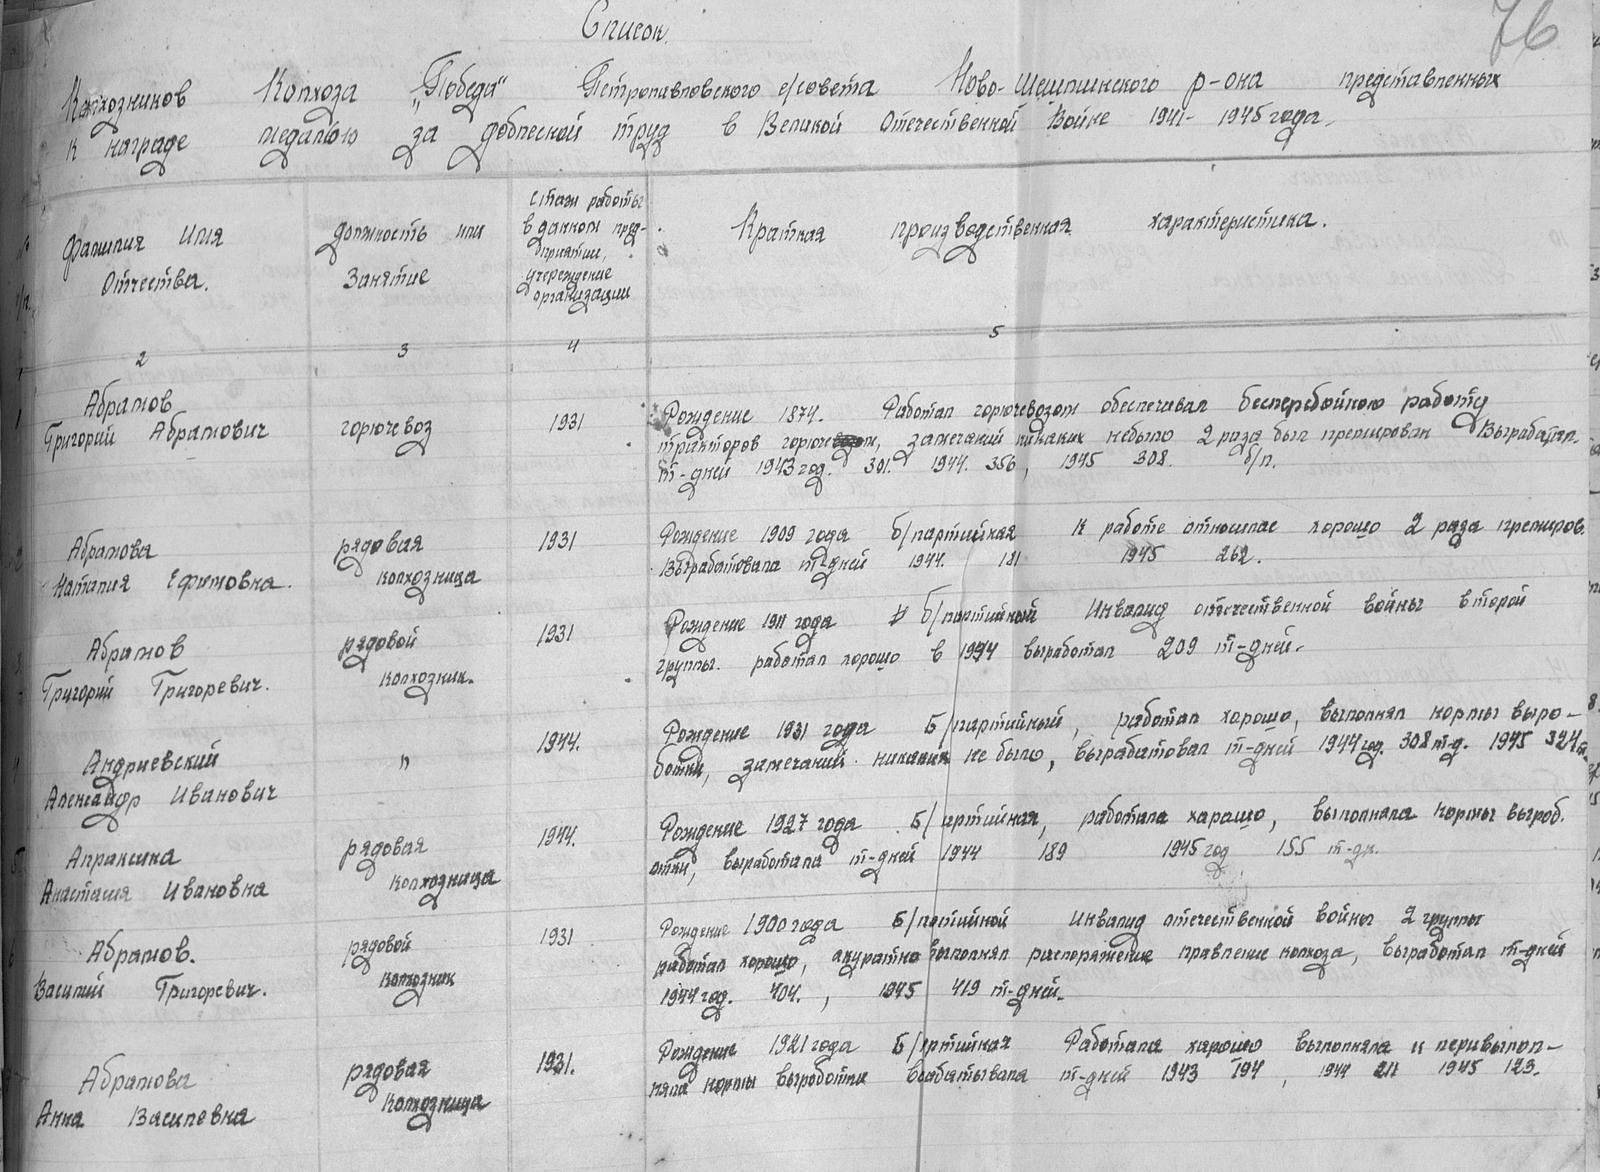 76
Список.
Колхозников Колхоза „Победа“ Петропавловского с/совета Ново-Шешминского р-она представленных
к награде медалью за доблесной труд в Великой Отечественной Войне 1941- 1945 года.
Фамилия Имя Отчества.
должность или Занятие
стаж работы в данном пред-приятии, учереждение организации
Краткая производственная характеристика.
2 3 4 5
1 Абрамов Григорий Абрамович
горючевоз
1931
Рождение 1874. Работал горючевозом обеспечивал бесперебойною работу
тракторов горючем, замечаний никаких небыло 2 раза был премирован Выработал
т-дней 1943 год. 301. 1944. 356, 1945 308. б/п.
2 Абрамова Наталия Ефимовна.
рядовая колхозница
1931
Рождение 1909 года б/партийная К работе относилас хорошо 2 раза премиров.
Выработовала т-дней 1944. 181 1945 262.
3 Абрамов Григорий Григоревич.
рядовой колхозник.
1931
Рождение 1911 года б/партийный Инвалид отечественной войны второй
группы. работал хорошо в 1944 выработал 209 т-дней.
Андриевский Александр Иванович
"
1944.
Рождение 1931 года Б/партийный, работал хорошо, выполнял нормы выро-
ботки, замечаний никаких не было, вырабатовал т-дней 1944 год. 308 т-д. 1945 324
5 Апраксина Анастасия Ивановна
рядовая колхозница
1944.
Рождение 1927 года Б/партийная, работала харошо, выполнала нормы выроб.
отки, выработала т-дней 1944 189 1945 год 155 т-дн.
6 Абрамов. Василий Григоревич.
рядовой колхозник
1931
Рождение 1900 года Б/партийной Инвалид отечественной войны 2 группы
работал хорошо, акуратно выполнял распоряжение правление колхоза, выработал т-дней
1944 год. 404. , 1945 419 т-дней.
Абрамова Анна Василевна
рядовая колхозница
1931.
Рождение 1921 года Б/партийная Работала харошо выполняла и перивыпол-
няла нормы выработки т-дней 1943 194, 1944 211 1945 123.